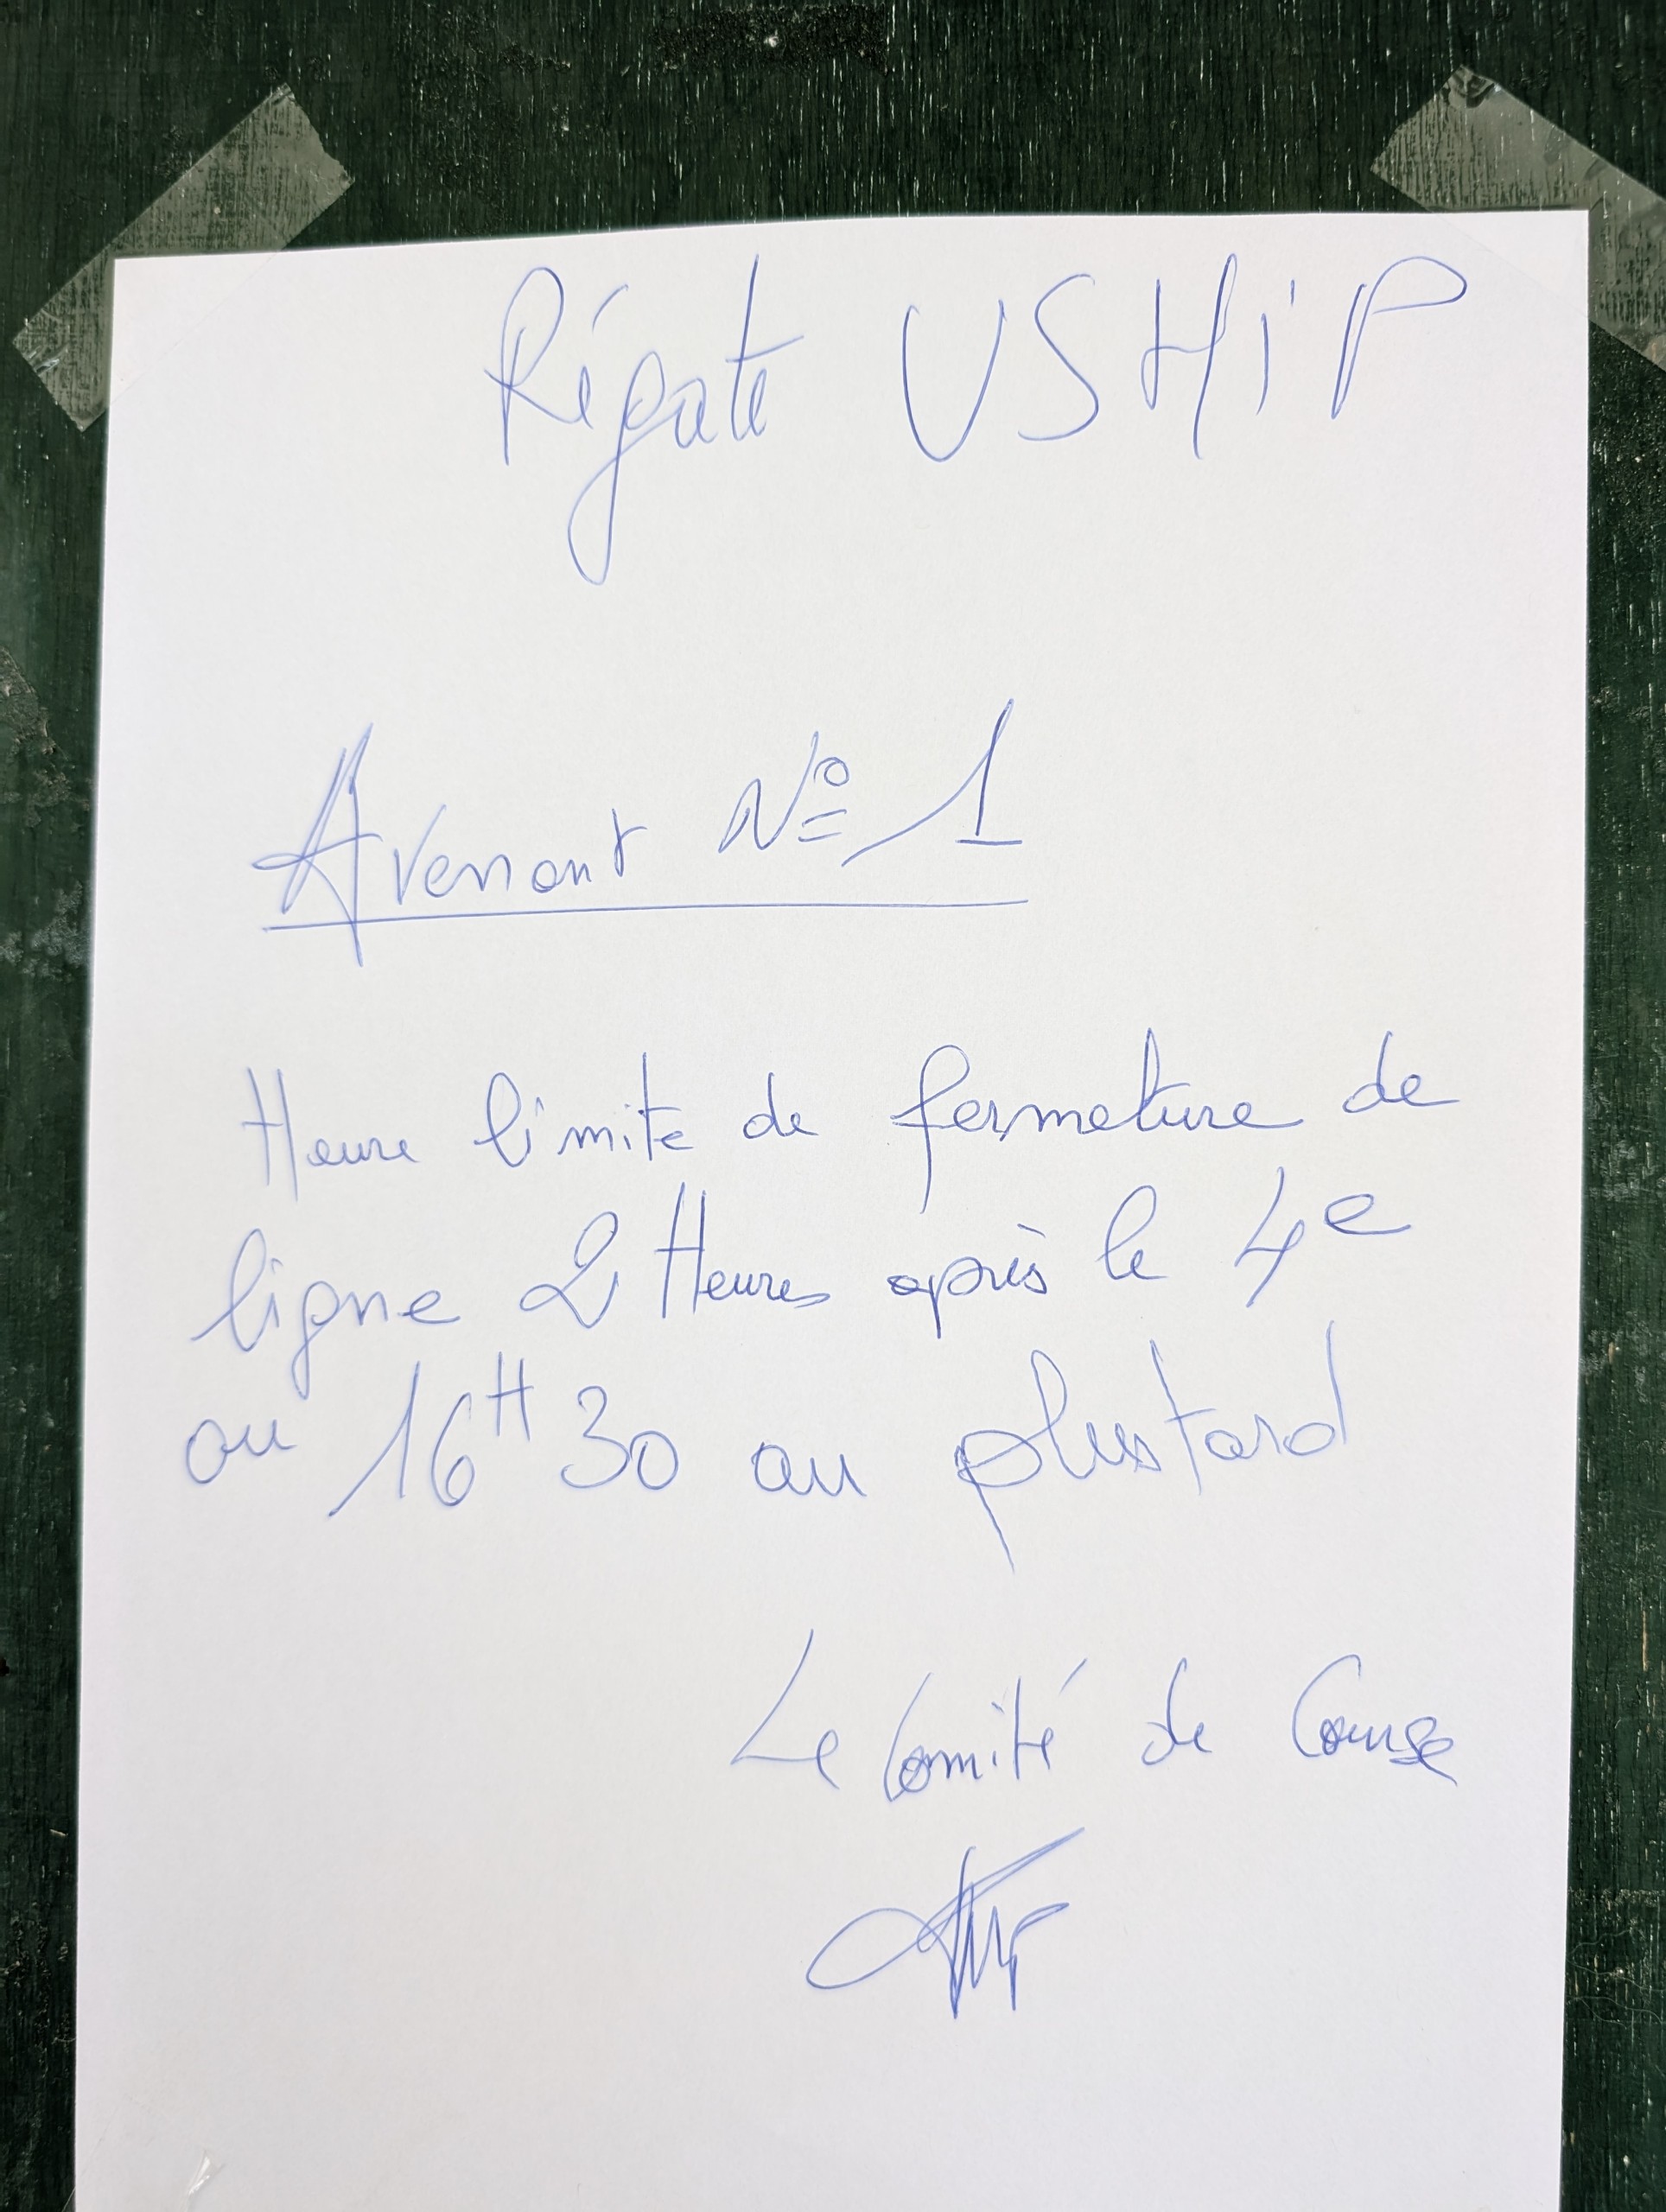 Régate USHiP
Avenant N° 1
Heure limite de fermeture de
ligne 2 Heures après le 4e
ou 16H30 au plus tard
Le Comité de Course